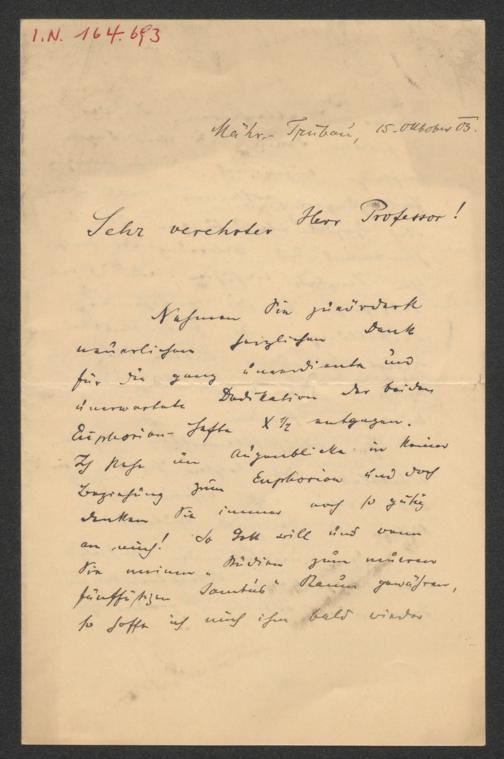 I.N. 164.693
Mähr.-Trübau, 15. Oktober 03.
Sehr verehrter Herr Professor!
Nehmen Sie zuvörderst
neuerlichen herzlichen Dank
für die ganz unverdiente und
unerwartete Dedikation der beiden
Euphorion-Hefte X 1/2 entgegen.
Ich stehe im Augenblicke in keiner
Beziehung zum Euphorion und doch
denken Sie immer noch so gütig
an mich! So Gott will und wenn
Sie meinen „Studien zum neueren
fünffüßigen Jambus" Raum gewähren,
so hoffe ich mich ihm bald wieder